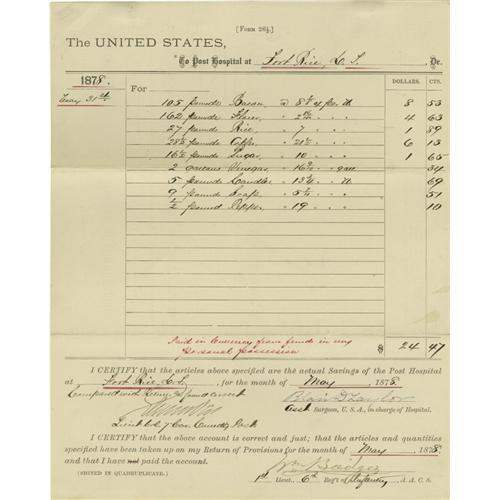 [FORM 28½.]
The UNITED STATES,
To Post Hospital at Fort Rice, D. T. Dr.
1878. For— DOLLARS. CTS.
May 31st
105 pounds Bacon @ 8 per lb 8 53
162 pounds Flour " " " 4 63
27 pounds Rice " 7 " " 1 89
pounds " " " 6 13
16½ pounds Sugar " 10 " " 1 65
2 Vinegar " gall 34
5 pounds Candles " " 69
9 pounds Soap " " " 51
½ pound Pepper " 19 " " 10
Paid in Currency from funds in my
personal possession $ 24 47
I CERTIFY that the articles above specified are the actual Savings of the Post Hospital
at Fort Rice, D. T., for the month of May 1878.
Compared with Return & found correct Blair D. Taylor
Asst Surgeon, U. S. A., in charge of Hospital.
Lieut Col 7 Cav. Comdg Post
I CERTIFY that the above account is correct and just; that the articles and quantities
specified have been taken up on my Return of Provisions for the month of May 1878.
and that I have not paid the account.
Wm Badger
[SIGNED IN QUADRUPLICATE.] 1st Lieut. 6th Reg't of Infantry, A. A. C. S.